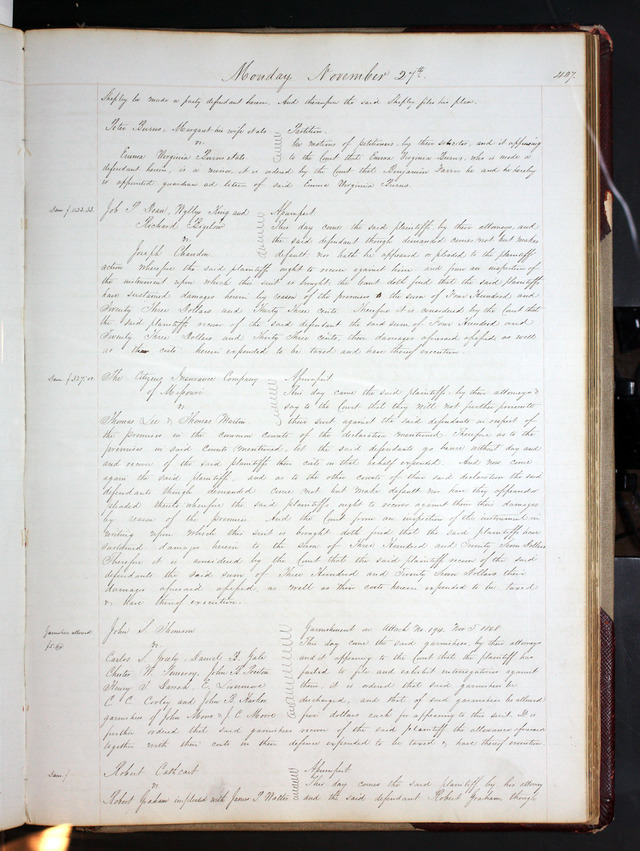 Monday November 27th. 427.
Shepley be made a party defendant herein, And thereupon the said Shepley files his plea.
Peter Burns, Margaret his wife et als Petition.
vs. On motion of petitioners, by their solicitor, and it appearing
Emma Virginia Burns et als to the Court that Emma Virginia Burns, who is made a
defendant herein, is a minor, it is ordered by the Court that Benjamin be and he hereby
is appointed guardian ad litem of said Emma Virginia Burns.
Dam $423.33. Job P. Dean, Wyllys King and Assumpsit
Richard Bigelow This day came the said plaintiffs, by their attorneys, and
vs. the said defendant though demanded comes not but makes
Joseph Chandon default nor hath he appeared or pleaded to the plaintiffs
action wherefore the said plaintiffs ought to recover against him and from an inspection of
the instrument upon which this suit is brought, the Court doth find that the said plaintiffs
have sustained damages herein by reason of the premises to the sum of Four Hundred and
Twenty Three Dollars and Thirty Three Cents. Therefore it is considered by the Court that
the said plaintiffs recover of the said defendant the said sum of Four Hundred and
Twenty Three Dollars and Thirty Three Cents, their damages aforesaid assessed, as well
as their costs herein expended to be taxed and have thereof execution.
Dam $327. The Citizens Insurance Company Assumpsit
of Missouri This day came the said plaintiffs, by their attorneys &
vs. say to the Court that they will not further prosecute
Thomas Lee & Thomas Martin their suit against the said defendants in respect of
the promises in the common counts of the declaration mentioned. Therefore as to the
promises in said Counts mentioned, let the said defendants go hence without day and
and recover of the said plaintiffs their costs in that behalf expended. And now come
again the said plaintiffs, and as to the other counts of their said declaration the said
defendants though demanded come not but make default nor have they appeared or
pleaded thereto wherefore the said plaintiffs ought to recover against them their damages
by reason of the premises. And the Court from an inspection of the instrument in
writing upon which this suit is brought doth find that the said plaintiffs have
sustained damages herein to the sum of Three Hundred and Twenty Seven Dollars
Therefore it is considered by the Court that the said plaintiffs recover of the said
defendants the said sum of Three Hundred and Twenty Seven Dollars their
damages aforesaid assessed, as well as their costs herein expended to be taxed
&. have thereof execution.
Garnishees allowed John S. Thomson Garnishment on Attach No. 194. Nov T. 1848
$5. vs. This day came the said garnishees, by their attorneys
Carlos S. Greely, Daniel B. Gale and it appearing to the Court that the plaintiff has
Chester W. John B. failed to file and exhibit interrogatories against
Henry T. C. Livermore them, it is ordered that said garnishees be
C. C. Cooley and John B. discharged, and that of said garnishees be allowed
garnishees of John Moore & J. C. Moore five dollars each for appearing to this suit. It is
further ordered that said garnishees recover of the said plaintiff the allowance aforesaid
together with their costs in their defence expended to be taxed & have thereof execution
Dam $ Robert Cathcart Assumpsit
vs. This day comes the said plaintiff by his attorney
Robert Graham impleaded with James P. Waller and the said defendant Robert Graham though